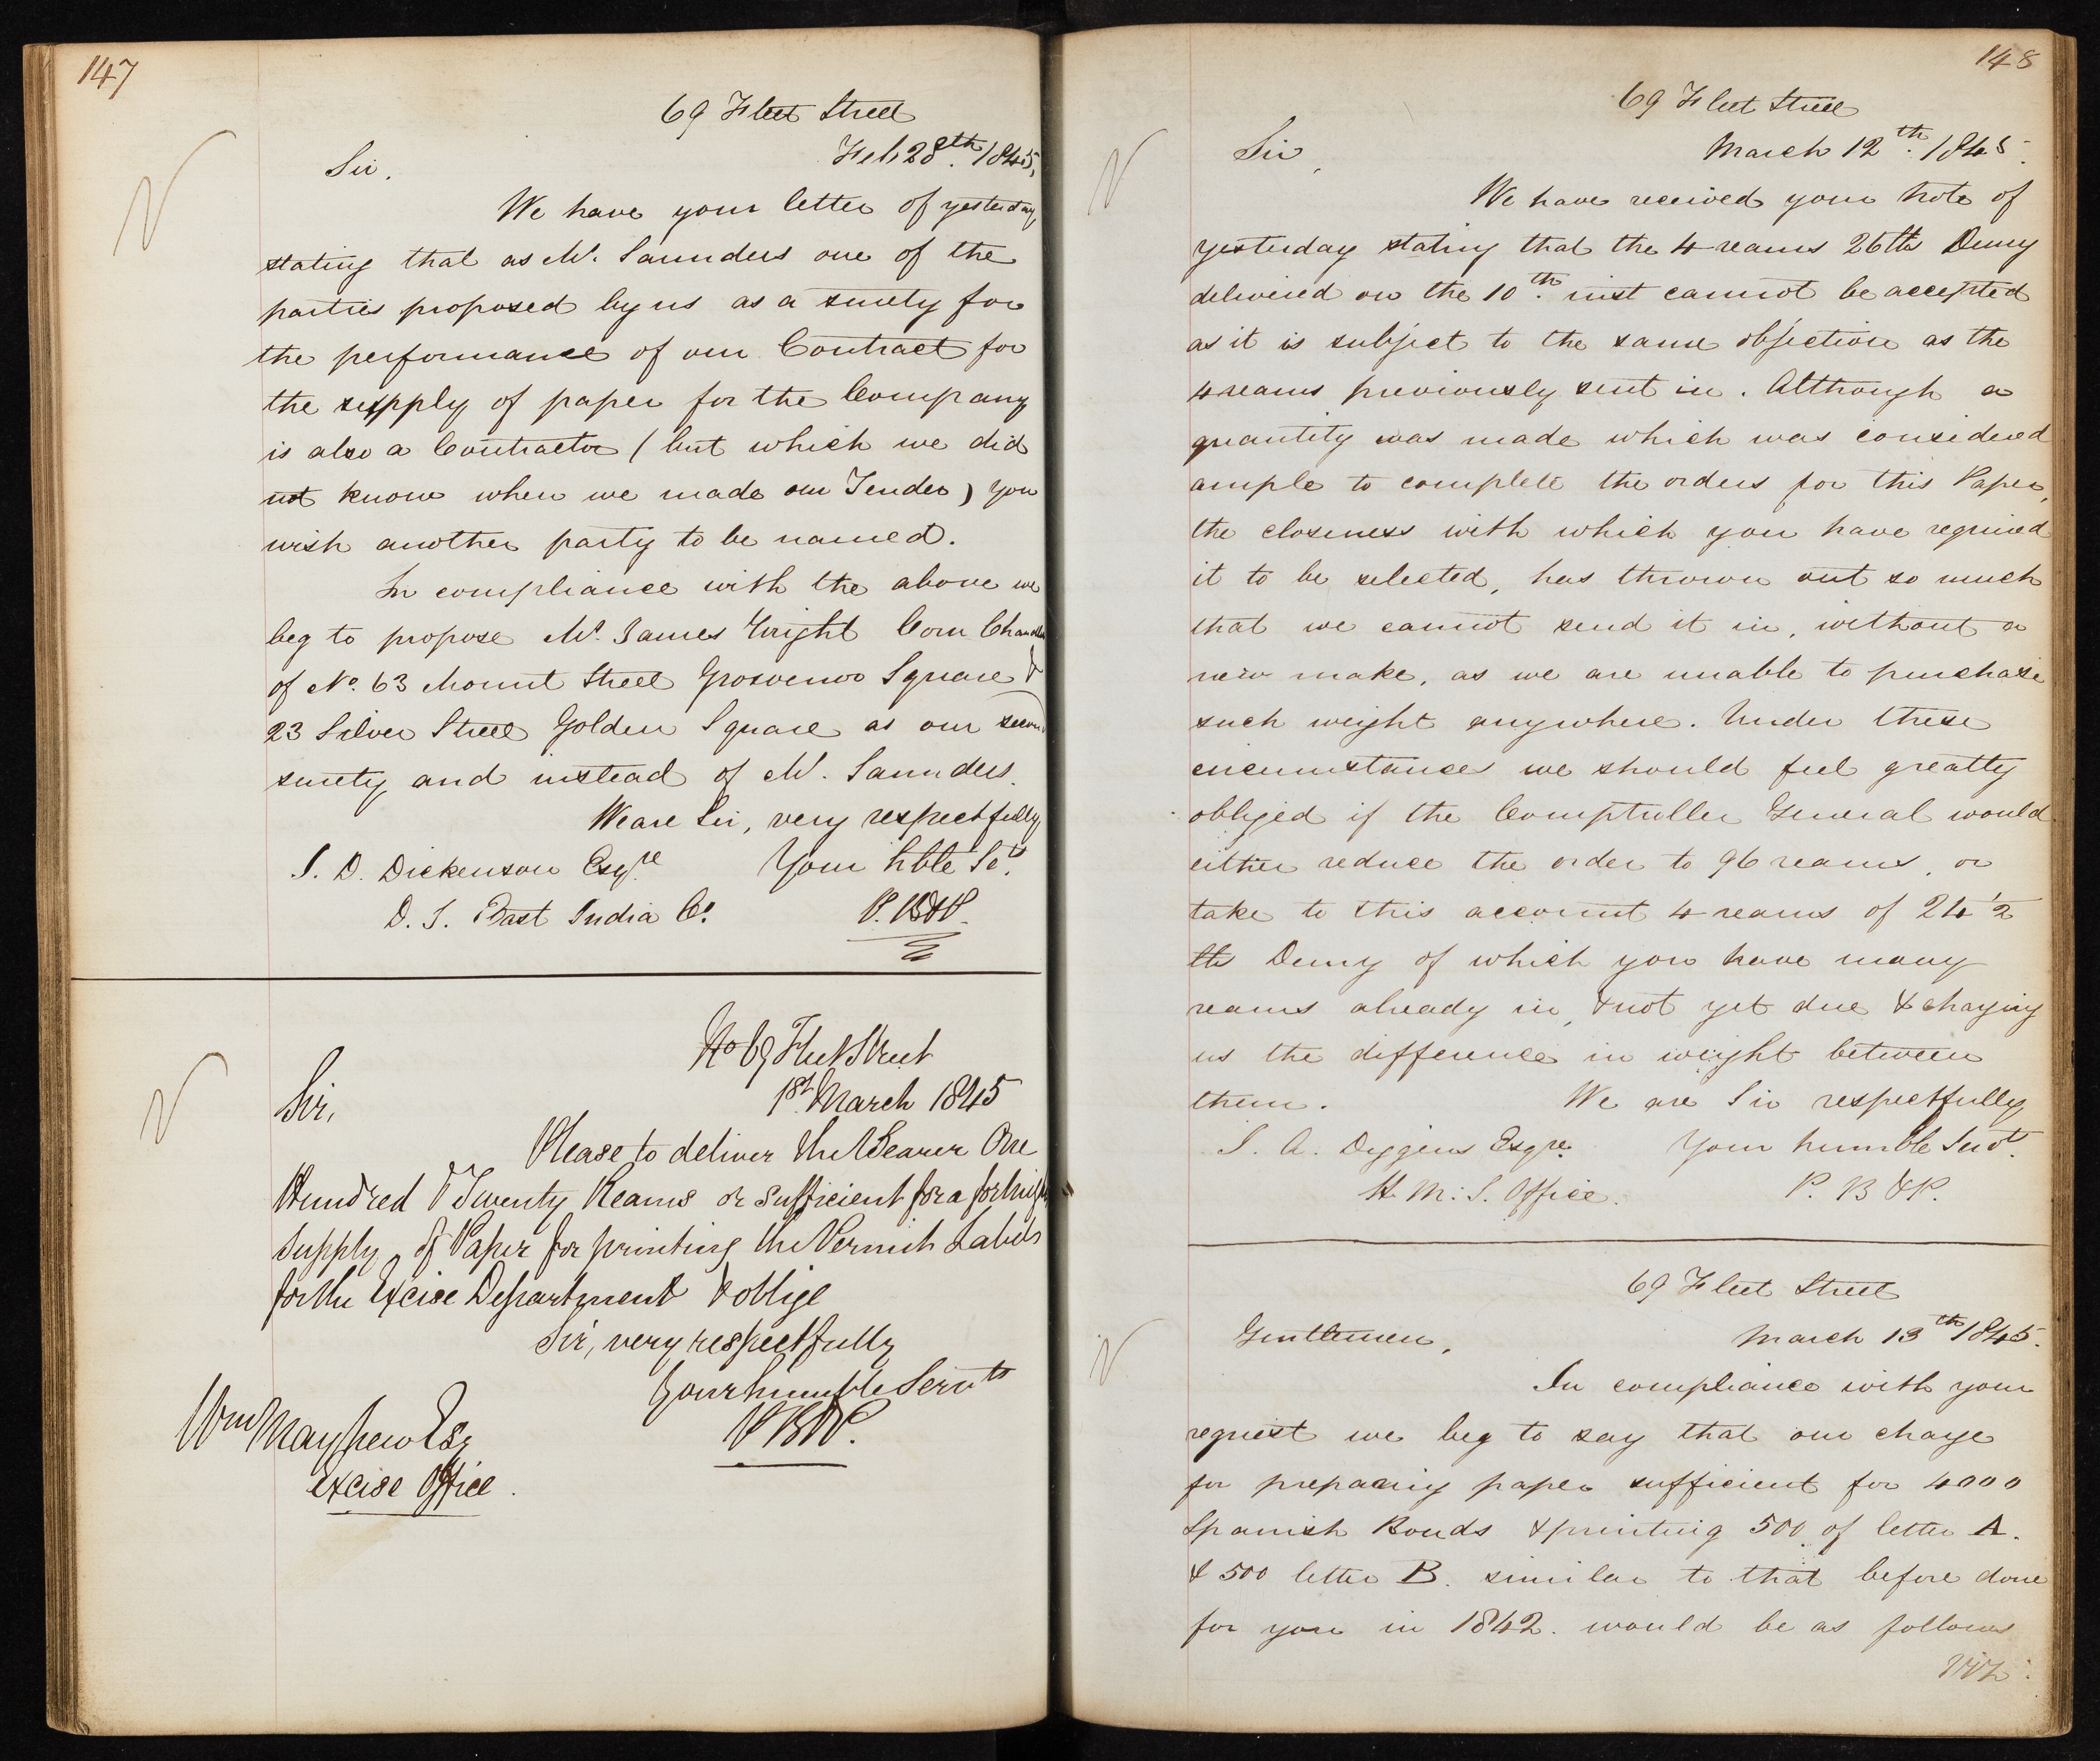 147
69 Fleet Street
Feb 28th. 1845,
Sir,
We have your letter of yesterday
stating that as Mr. Saunders one of the
parties proposed by us as a surety for
the performance of our Contract for
the supply of paper for the Company
is also a Contractor (but which we did
not know when we made our Tender) you
wish another party to be named.
In compliance with the above we
beg to propose Mr. James Wright Corn
of No. 63 Mount Street Grosvenor Square &
23 Silver Street Golden Square as our second
surety and instead of Mr. Saunders.
We are Sir, very respectfully
S. D. Dickenson Esqre Your hble Sts.
D. S. East India Co. P. B & P.
No 69 Fleet Street
1st. March 1845
Sir,
Please to deliver the Bearer One
Hundred & Twenty Reams or sufficient for a fortnight
supply of Paper for printing the Permit Labels
for the Excise Department & oblige
Sir, very respectfully
Your humble Servts
P B & P.
Wm Mayhew Esq
Excise Office.
148
69 Fleet Street
March 12th. 1845.
Sir,
We have received your Note of
yesterday stating that the 4 reams 26 lbs Demy
delivered on the 10th. inst cannot be accepted
as it is subject to the same objection as the
4 reams previously sent in. Although a
quantity was made which was considered
ample to complete the orders for this Paper,
the closeness with which you have required
it to be selected, has thrown out so much
that we cannot send it in, without a
new make, as we are unable to purchase
such weight anywhere. Under these
circumstances we should feel greatly
obliged if the Comptroller General would
either reduce the order to 96 reams, or
take to this account 4 reams of 24 1/2
lbs Demy of which you have many
reams already in, & not yet due & charging
us the difference in weight between
them. We are Sir respectfully
S. A. Diggens Esqre. Your humble Servt.
H. M: S. Office. P. B & P.
69 Fleet Street
Gentlemen, March 13th 1845.
In compliance with your
request we beg to say that our charge
for preparing paper sufficient for 4000
Spanish Bonds & printing 500 of letter A.
& 500 letter B. similar to that before done
for you in 1842. would be as follows
Viz: